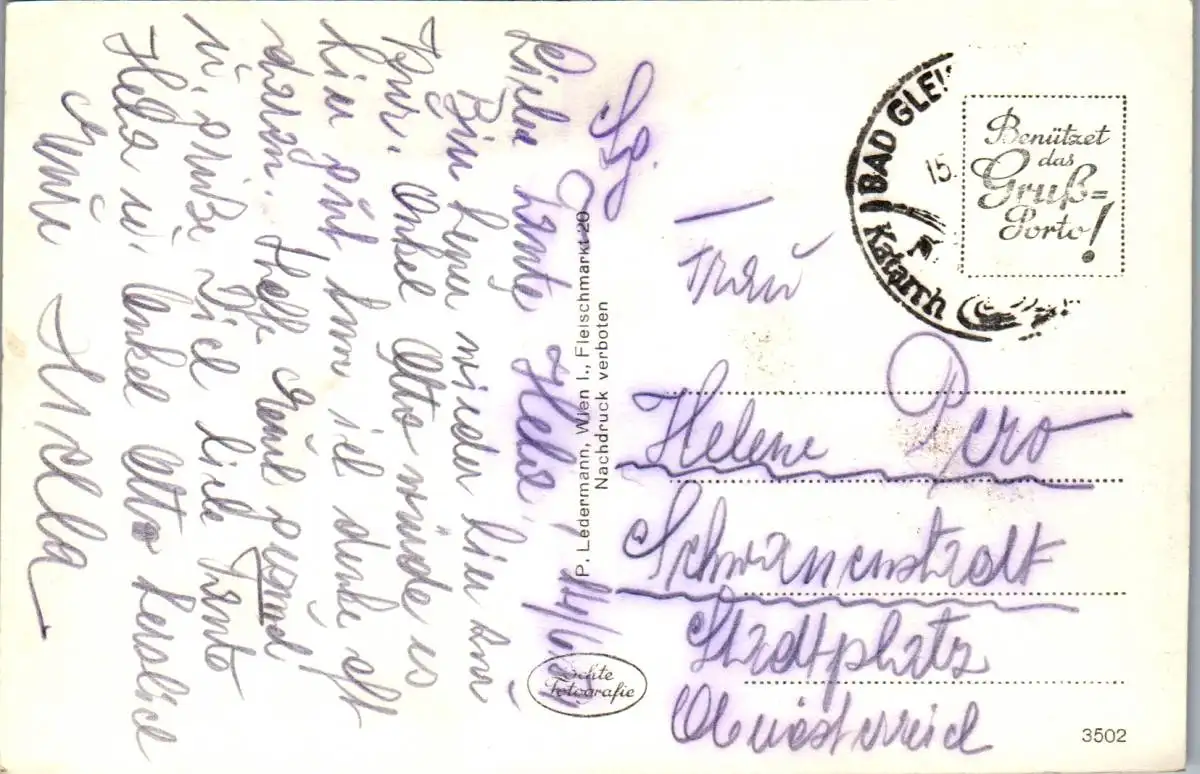 Liebe Tante Hela!
Bin heuer wieder hier zur
Kur. Onkel Otto würde es
hier gut tun ich denke oft
daran. Hoffe Euch gesund
u. grüße Dich liebe Tante
Hela u. Onkel Otto herzlich
Eure Hilda
P. Ledermann, Wien I., Fleischmarkt 20
Nachdruck verboten
Echte
Fotografie
BAD GLEI
15.
Katarrh
Benützet
das
Gruß=
Porto!
Frau
Helene Pero
Schwanenstadt
Stadtplatz
Oberösterreich
3502